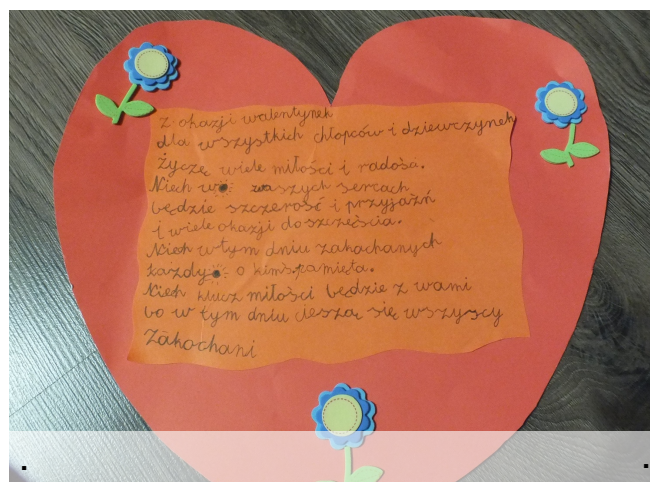 z okazji walentynek
dla wszystkich chłopców i dziewczynek
życzę wiele miłości i radośa.
Niech w waszych sercach
będzie szczerość i przyjaźń
i wiele okazji do szczęścia.
Niech w tym dniu zakochanych
każdy o kimś pamięta.
Niech klucz miłości będzie z wami
bo w tym dniu cieszą się wszyscy
Zakochani